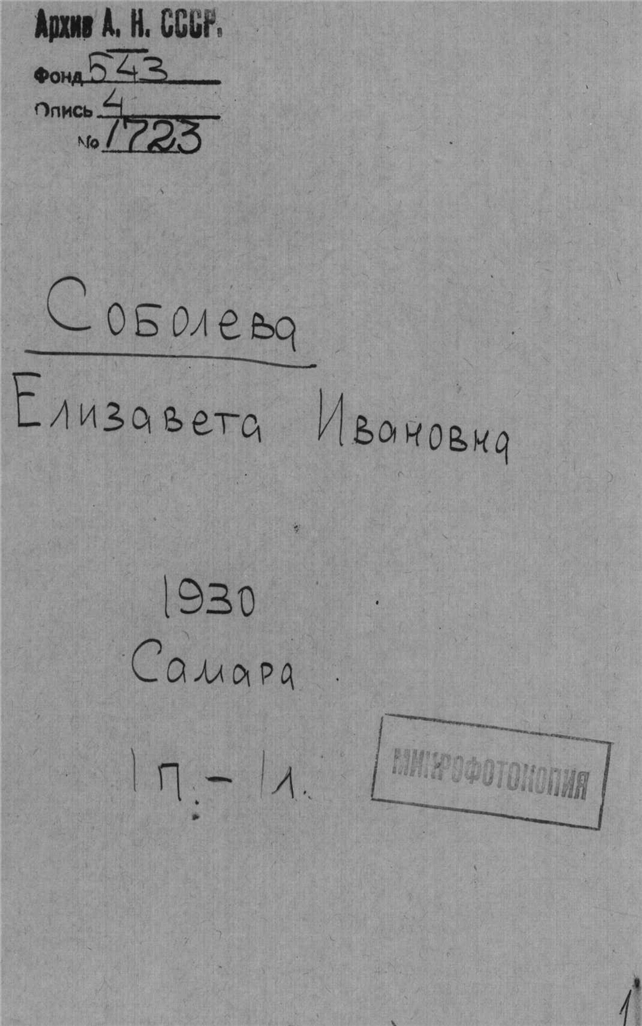 Архив А. Н. СССР.
Фонд 543
Опись 4
№ 1723
Соболева
Елизавета Ивановна
1930
Самара
1 п. – 1 л.
МИКРОФОТОКОПИЯ
1